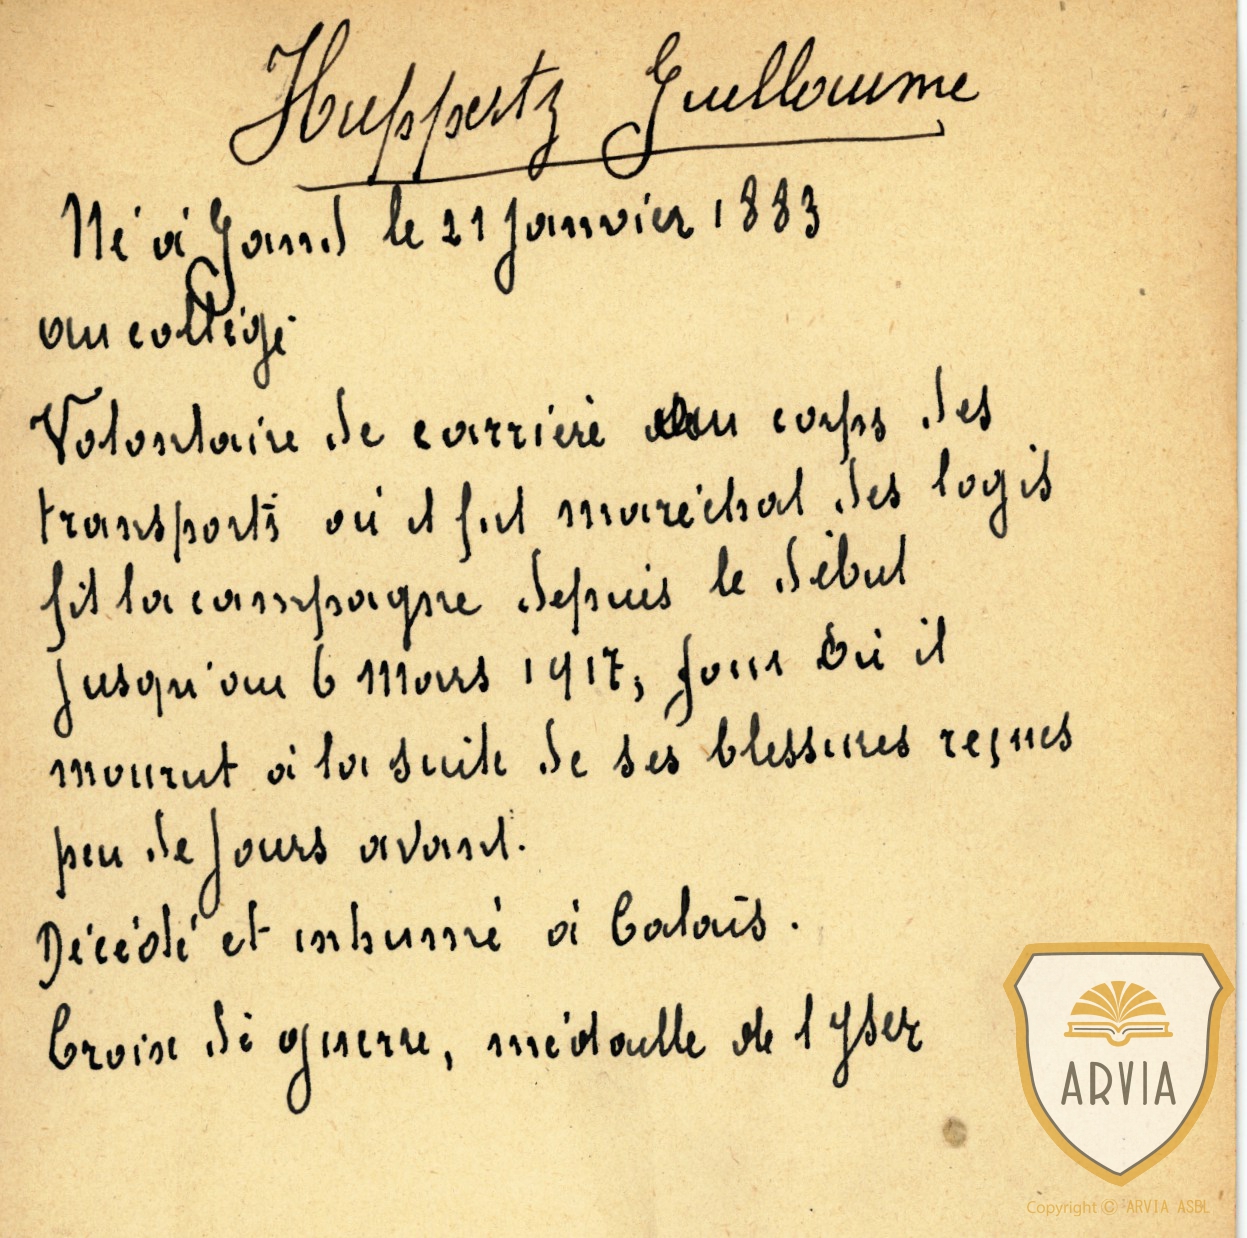 Huppertz Guillaume
Né à Gand le 21 janvier 1883
au collège
Volontaire de carrière au corps des
transports où il fut maréchal des logis
fit la campagne depuis le début
jusqu'au 6 mars 1917, jour où il
mourut à la suite de ses blessures reçues
peu de jours avant.
Décédé et inhumé à Calais.
Croix de guerre, médaille de l'Yser
ARVIA
Copyright © ARVIA ASBL